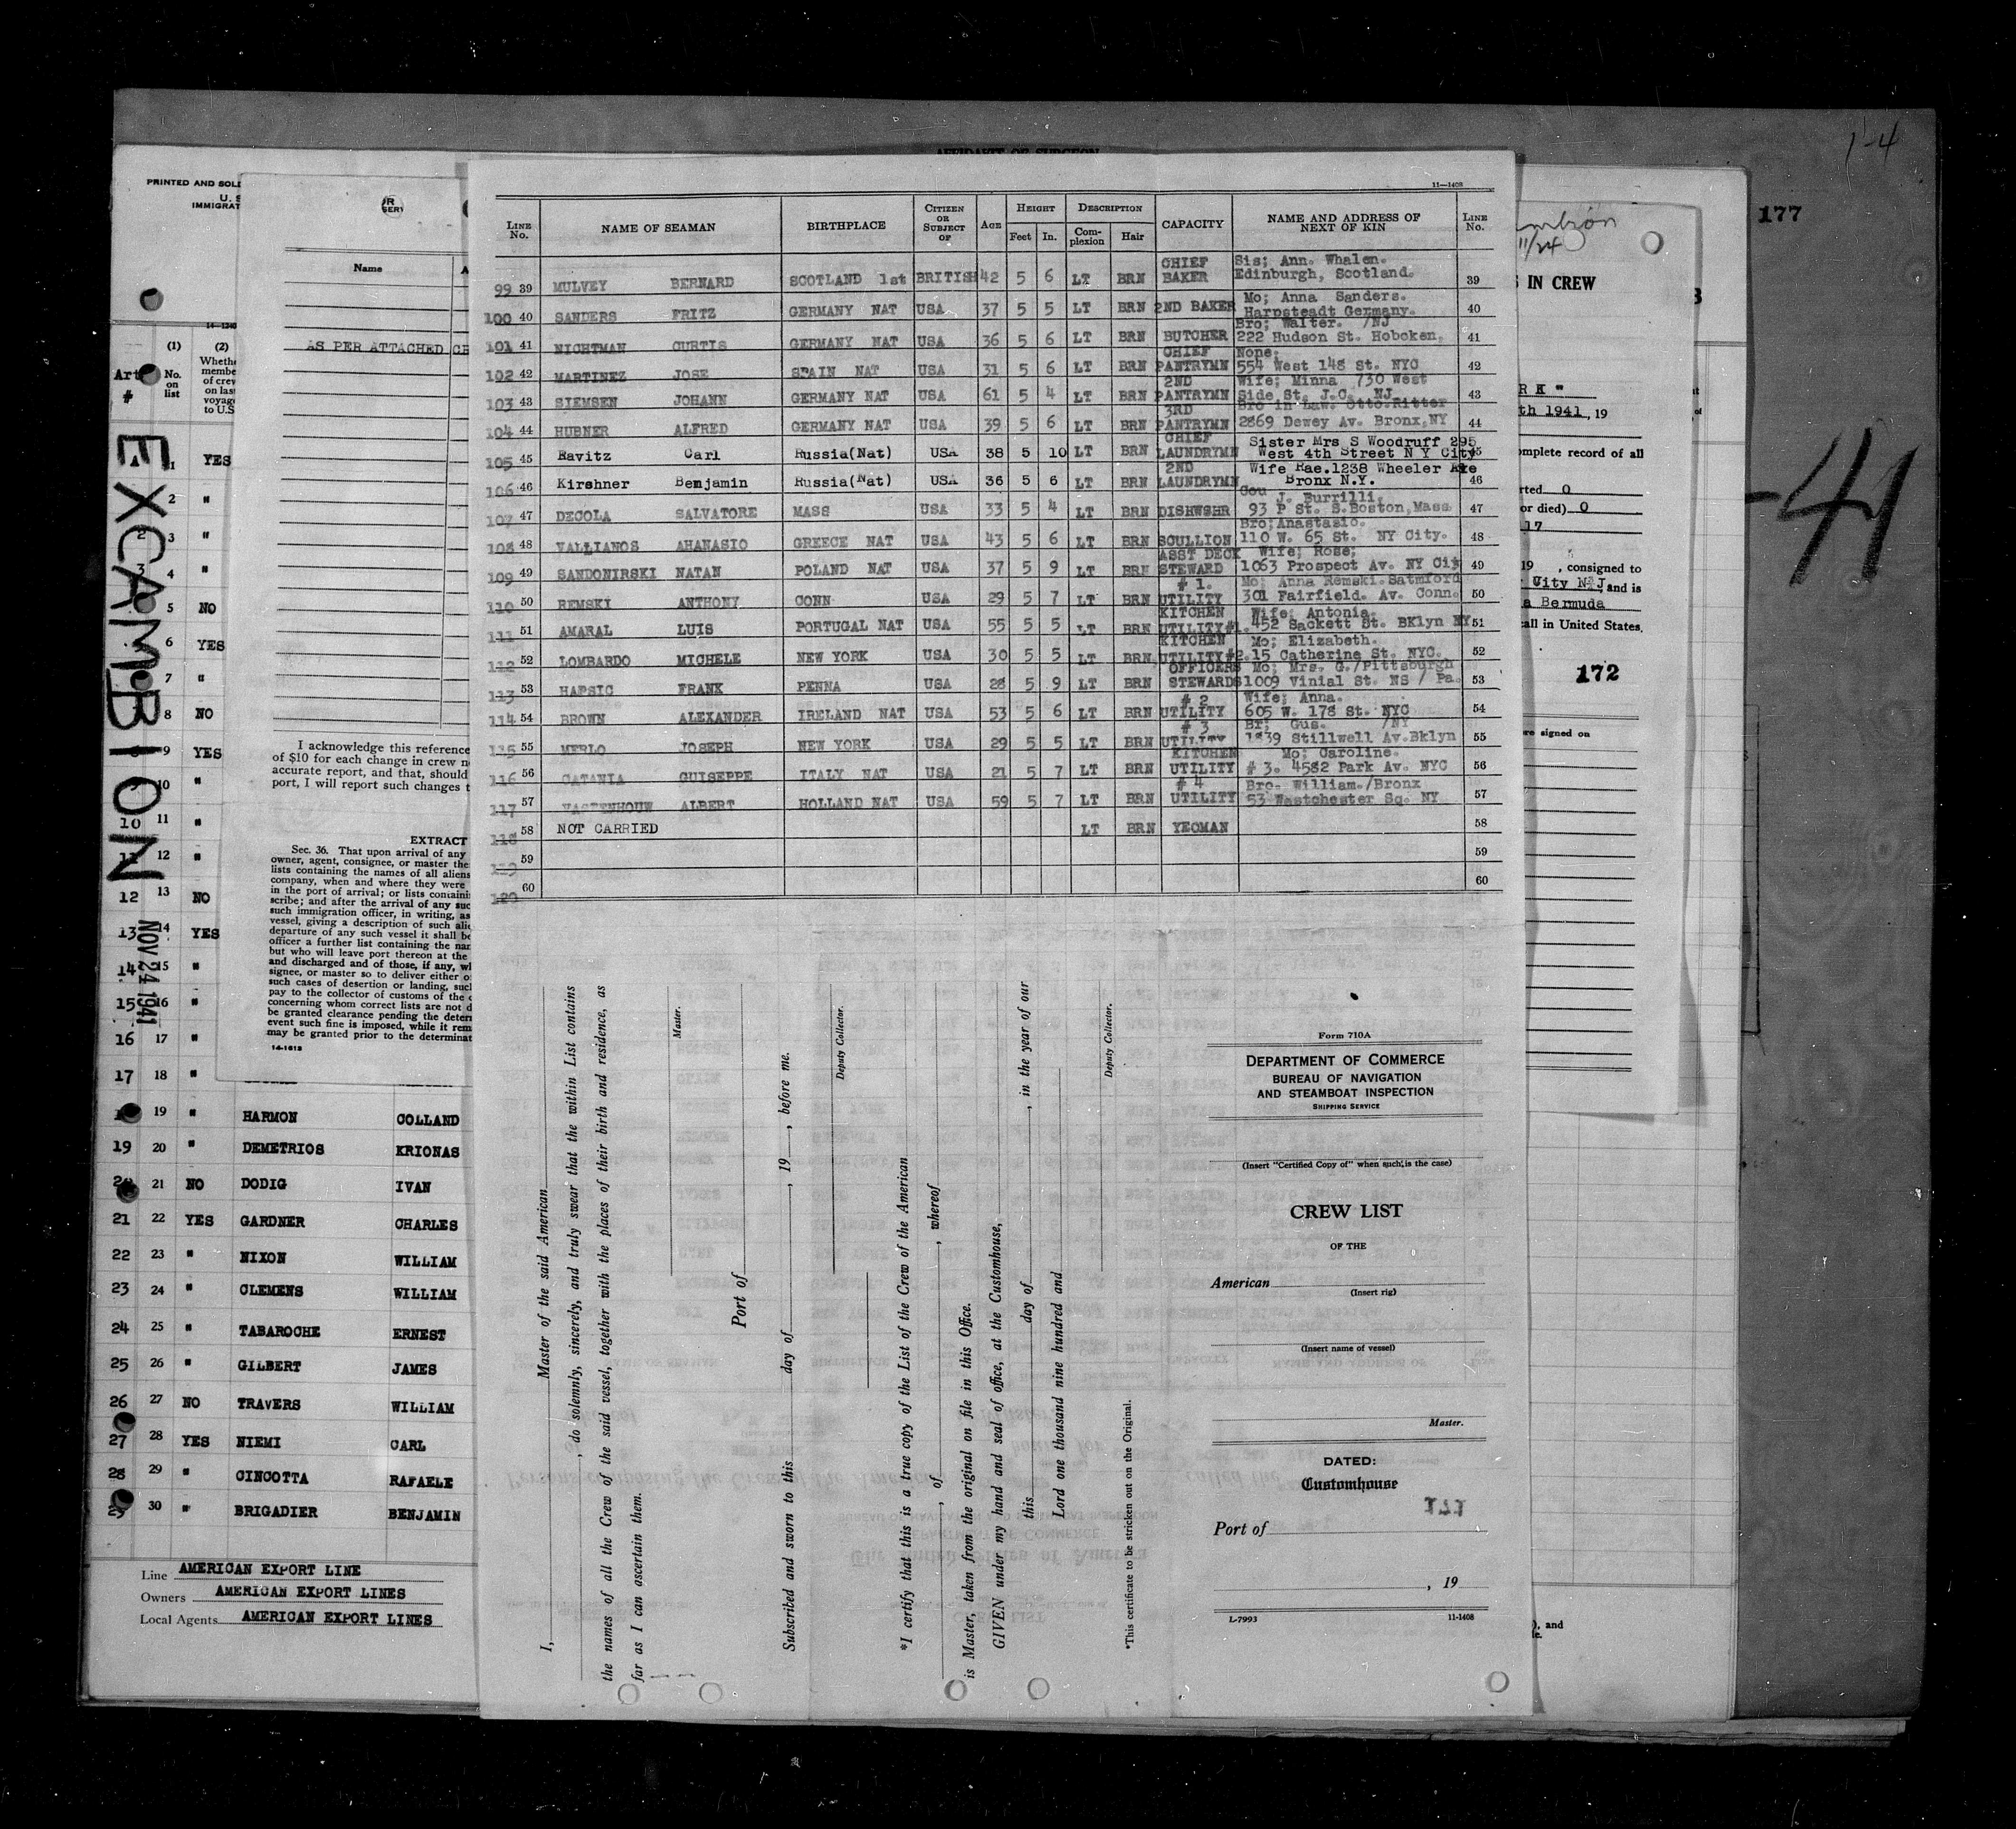 1-4
AFFIDAVIT OF SURGEON
177
-41
PRINTED AND SOLD
U. S
IMMIGRAT
Name
AS PER ATTACHED
(1) (2)
No. on list
Art #
EXCAMBION
NOV 24 1941
I acknowledge this reference
of $10 for each change in crew
accurate report, and that, should
port, I will report such changes
EXTRACT
Sec. 36. That upon arrival of any
owner, agent, consignee, or master
lists containing the names of all aliens
company, when and where they were
in the port of arrival; or lists
scribe; and after the arrival of any
such immigration officer, in writing, as
vessel, giving a description of such
departure of any such vessel it shall
officer a further list containing the
but who will leave port thereon at the
and discharged and of those, if any,
signee, or master so to deliver either
such cases of desertion or landing,
pay to the collector of customs of the
concerning whom correct lists are not
be granted clearance pending the
event such fine is imposed, while it
may be granted prior to the
14-1613
1 YES
2 "
3 "
4 "
5 NO
6 YES
7 "
8 NO
9 YES
10 "
10 11 "
12 "
12 13 NO
13 14 YES
14 15 "
15 16 "
16 17 "
17 18 "
19 " HARMON COLLAND
19 20 " DEMETRIOS KRIONAS
20 21 NO DODIG IVAN
21 22 YES GARDNER CHARLES
22 23 " NIXON WILLIAM
23 24 " CLEMENS WILLIAM
24 25 " TABAROCHE ERNEST
25 26 " GILBERT JAMES
26 27 NO TRAVERS WILLIAM
27 28 YES NIEMI CARL
28 29 " CINCOTTA RAFAELE
29 30 " BRIGADIER BENJAMIN
Line AMERICAN EXPORT LINE
Owners AMERICAN EXPORT LINES
Local Agents AMERICAN EXPORT LINES
11—1408
LINE No. NAME OF SEAMAN BIRTHPLACE CITIZEN OR SUBJECT OF AGE HEIGHT Feet In. DESCRIPTION Complexion Hair CAPACITY NAME AND ADDRESS OF NEXT OF KIN LINE No.
99 39 MULVEY BERNARD SCOTLAND 1st BRITISH 42 5 6 LT BRN CHIEF BAKER Sis; Ann. Whalen. Edinburgh, Scotland. 39
100 40 SANDERS FRITZ GERMANY NAT USA 37 5 5 LT BRN 2ND BAKER Mo; Anna Sanders. Harpsteadt Germany. 40
101 41 NICHTMAN CURTIS GERMANY NAT USA 36 5 6 LT BRN BUTCHER Bro; Walter. /NJ 222 Hudson St. Hoboken. 41
102 42 MARTINEZ JOSE SPAIN NAT USA 31 5 6 LT BRN CHIEF PANTRYMN None; 554 West 148 St. NYC 42
103 43 SIEMSEN JOHANN GERMANY NAT USA 61 5 4 LT BRN 2ND PANTRYMN Wife; Minna 730 West Side St. J.C. NJ 43
104 44 HUBNER ALFRED GERMANY NAT USA 39 5 6 LT BRN 3RD PANTRYMN Bro in Law. Otto.Ritter 2869 Dewey Av. Bronx,NY 44
105 45 Ravitz Carl Russia(Nat) USA 38 5 10 LT BRN CHIEF LAUNDRYMN Sister Mrs S Woodruff 295 West 4th Street N Y City 45
106 46 Kirshner Benjamin Russia(Nat) USA 36 5 6 LT BRN 2ND LAUNDRYMN Wife Rae.1238 Wheeler Ave Bronx N.Y. 46
107 47 DECOLA SALVATORE MASS USA 33 5 4 LT BRN DISHWSHR Cou J. Burrilli. 93 P St. S.Boston,Mass 47
108 48 VALLIANOS AHANASIO GREECE NAT USA 43 5 6 LT BRN SCULLION Bro;Anastasio. 110 W. 65 St. NY City. 48
109 49 SANDONIRSKI NATAN POLAND NAT USA 37 5 9 LT BRN ASST DECK STEWARD Wife; Rose; 1063 Prospect Av. NY City 49
110 50 REMSKI ANTHONY CONN USA 29 5 7 LT BRN # 1. UTILITY Mo; Anna Remski.Satmford 301 Fairfield. Av. Conn. 50
111 51 AMARAL LUIS PORTUGAL NAT USA 55 5 5 LT BRN KITCHEN UTILITY#1. Wife; Antonia. 452 Sackett St. BKlyn NY 51
112 52 LOMBARDO MICHELE NEW YORK USA 30 5 5 LT BRN KITCHEN UTILITY#2. Mo; Elizabeth. 15 Catherine St. NYC. 52
113 53 HAPSIC FRANK PENNA USA 28 5 9 LT BRN OFFICERS STEWARDS Mo; Mrs. G./Pittsburgh 1009 Vinial St. NS / Pa. 53
114 54 BROWN ALEXANDER IRELAND NAT USA 53 5 6 LT BRN # 2 UTILITY Wife; Anna. 605 W. 178 St. NYC 54
115 55 MERLO JOSEPH NEW YORK USA 29 5 5 LT BRN # 3 UTILITY Br; Gus. /NY 1839 Stillwell Av.Bklyn 55
116 56 CATANIA GUISEPPE ITALY NAT USA 21 5 7 LT BRN KITCHEN UTILITY # 3. Mo; Caroline. 4582 Park Av. NYC 56
117 57 VASTENHOUW ALBERT HOLLAND NAT USA 59 5 7 LT BRN # 4 UTILITY Bro- William./Bronx 53 Wastchester Sq. NY 57
118 58 NOT CARRIED LT BRN YEOMAN 58
119 59 59
120 60 60
I, Master of the said American
, do solemnly, sincerely, and truly swear that the within List contains
the names of all the Crew of the said vessel, together with the places of their birth and residence, as
far as I can ascertain them.
Master.
Port of
Subscribed and sworn to this day of , 19 , before me.
Deputy Collector.
*I certify that this is a true copy of the List of the Crew of the American
, of , whereof
is Master, taken from the original on file in this Office.
GIVEN under my hand and seal of office, at the Customhouse,
this day of , in the year of our
Lord one thousand nine hundred and
Deputy Collector.
*This certificate to be stricken out on the Original.
Form 710A
DEPARTMENT OF COMMERCE
BUREAU OF NAVIGATION
AND STEAMBOAT INSPECTION
SHIPPING SERVICE
(Insert "Certified Copy of" when such is the case)
CREW LIST
OF THE
American
(Insert rig)
(Insert name of vessel)
Master.
DATED:
Customhouse
Port of
, 19
L-7993 11-1408
11/24
IN CREW
RK"
th 1941, 19
complete record of all
0
or died) 0
17
19 , consigned to
City N.J. and is
Bermuda
call in United States,
172
signed on
, and